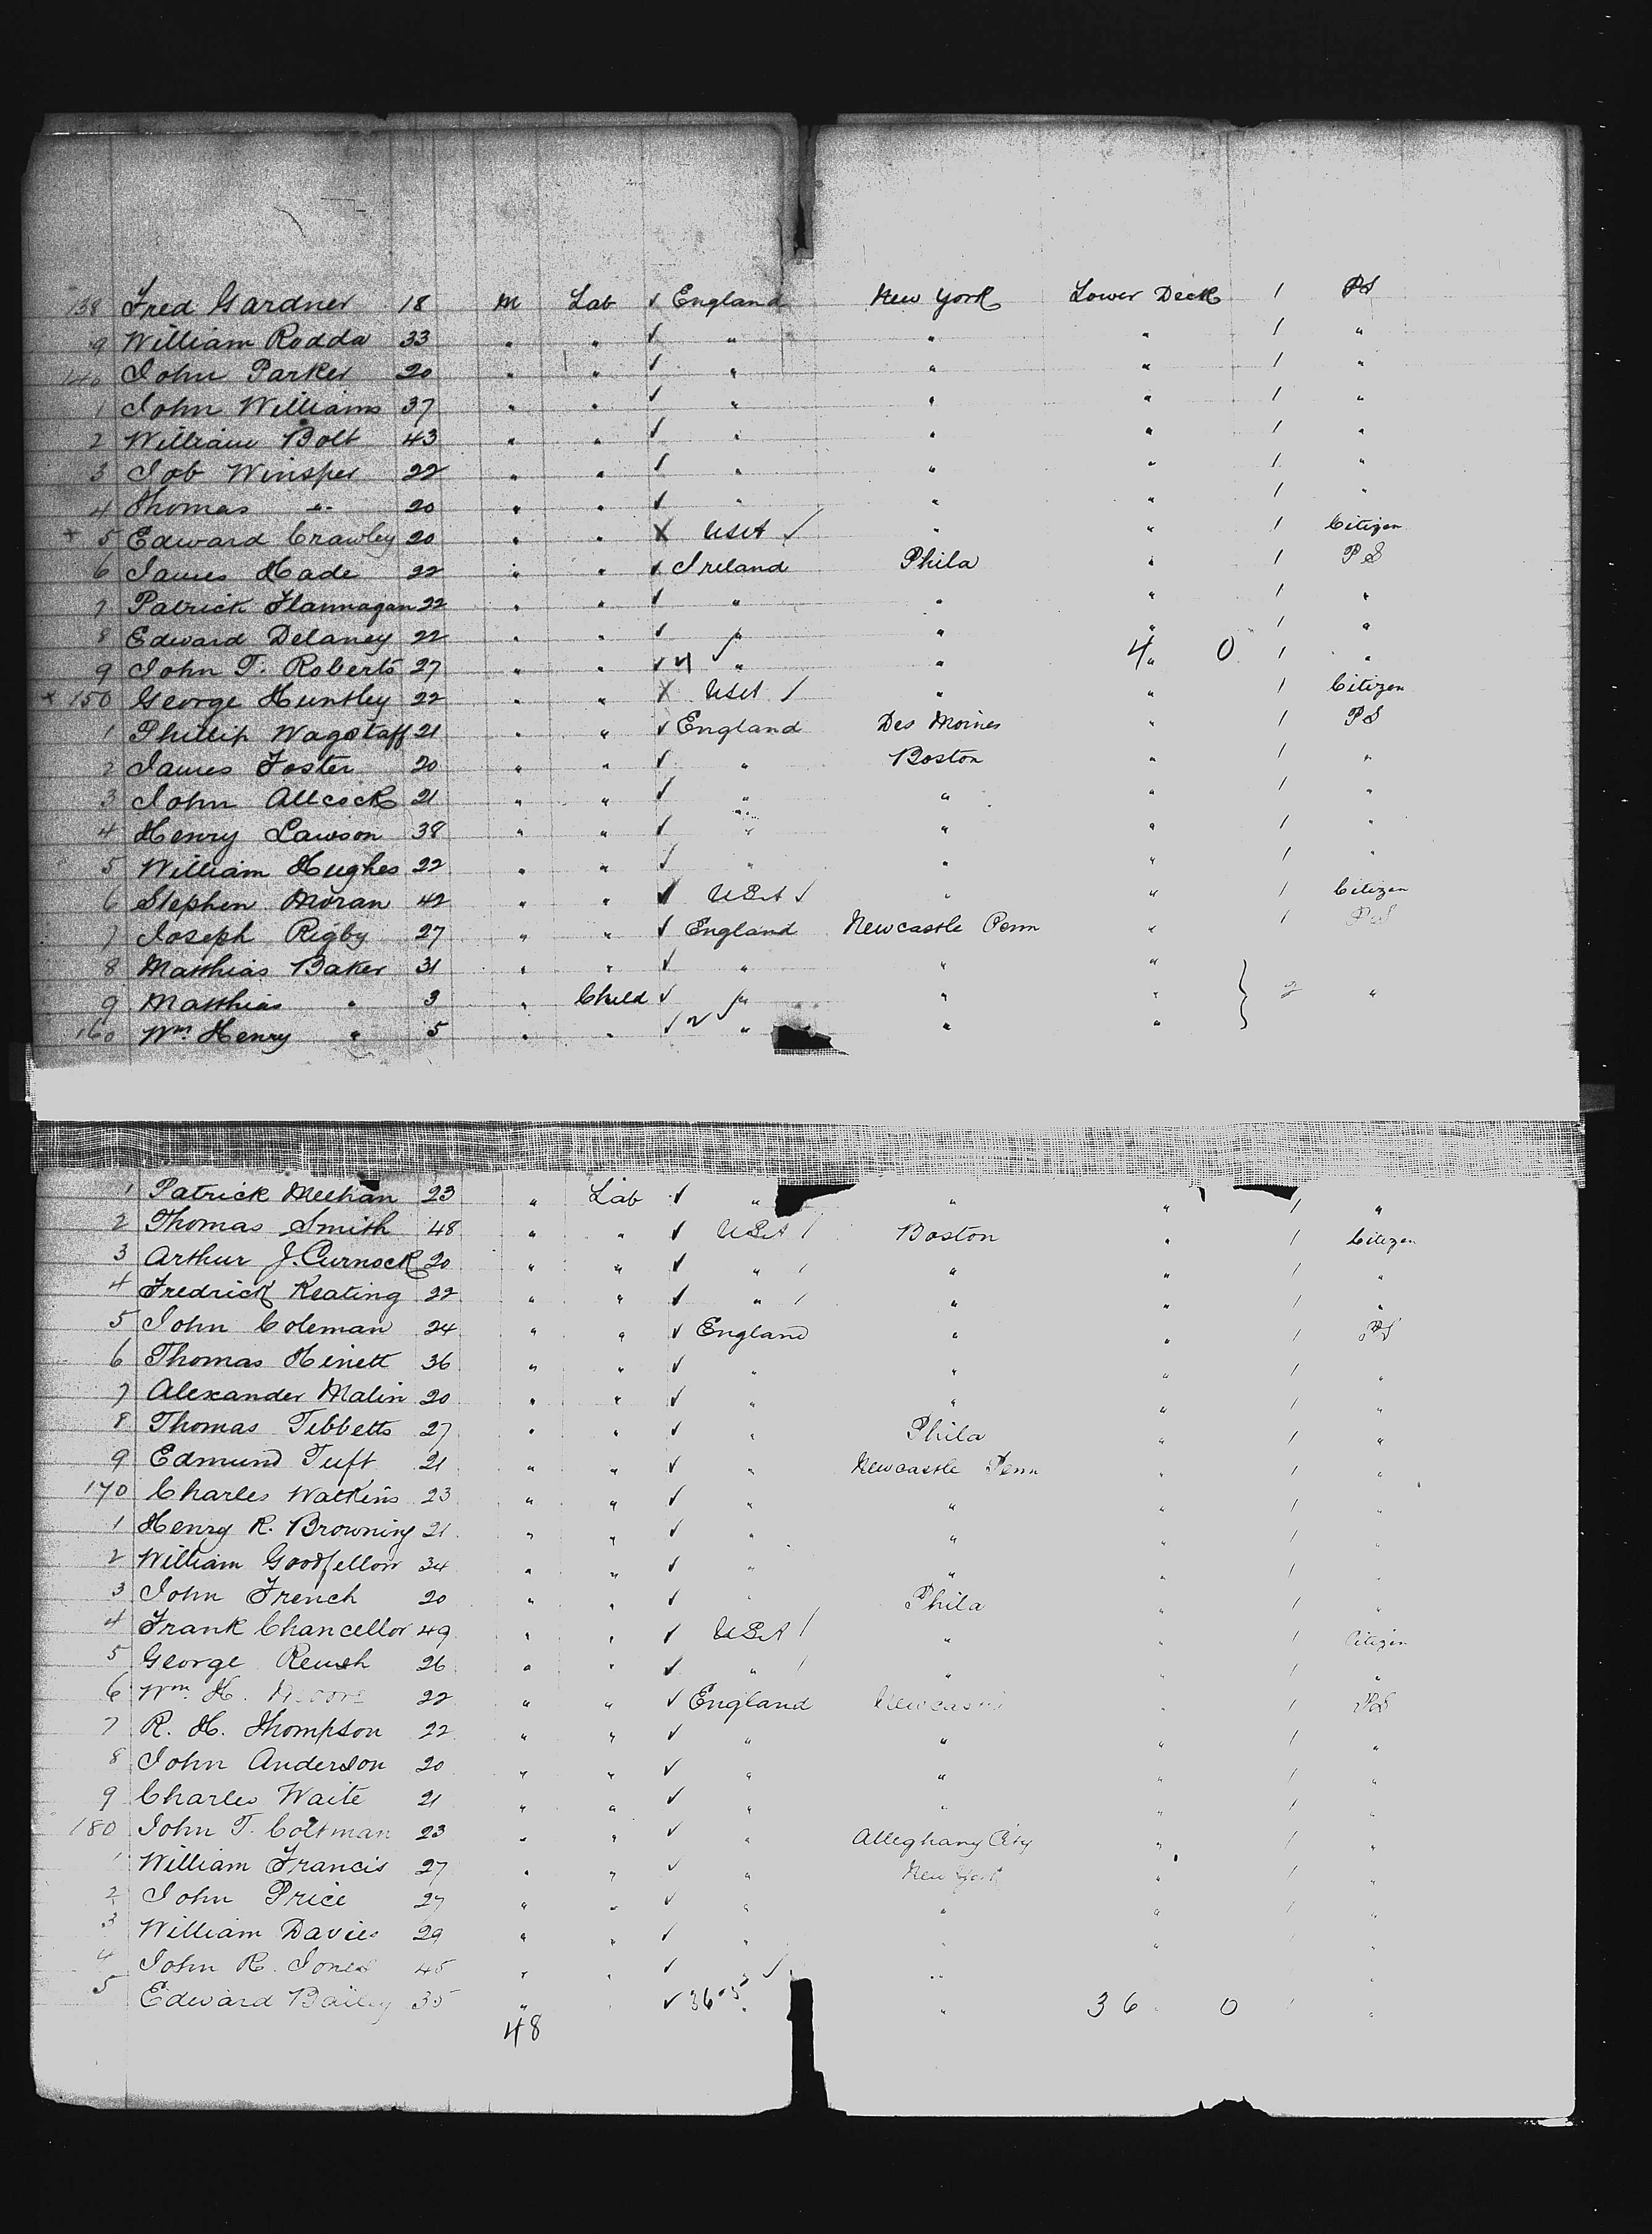 138 Fred Gardner 18 M Lab ✓ England New York Lower Deck 1 PS
9 William Rodda 33 " " ✓ " " " 1 "
140 John Parker 20 " " ✓ " " " 1 "
1 John Williams 37 " " ✓ " " " 1 "
2 William Bolt 43 " " ✓ " " " 1 "
3 Job Winsper 22 " " ✓ " " " 1 "
4 Thomas " 20 " " ✓ " " " 1 "
+ 5 Edward Crawley 20 " " X USA ✓ " " 1 Citizen
6 James Hade 22 " " ✓ Ireland Phila " 1 PS
7 Patrick Flannagan 22 " " ✓ " " " 1 "
8 Edward Delaney 22 " " ✓ " " " 1 "
9 John T. Roberts 27 " " ✓ 4 " " 4 " 0 1 "
+ 150 George Huntley 22 " " X USA / " " 1 Citizen
1 Phillip Wagstaff 21 " " ✓ England Des Moines " 1 PS
2 James Foster 20 " " ✓ " Boston " 1 "
3 John Allcock 21 " " ✓ " " " 1 "
4 Henry Lawson 38 " " ✓ " " " 1 "
5 William Hughes 22 " " ✓ " " " 1 "
6 Stephen Moran 42 " " ✓ USA ✓ " " 1 Citizen
7 Joseph Rigby 27 " " ✓ England Newcastle Penn " 1 PS
8 Matthias Baker 31 " " ✓ " " "
9 Matthias " 3 " Child ✓ " " " } 2 "
160 Wm. Henry " 5 " " ✓ 2 " " "
1 Patrick Meehan 23 " Lab ✓ " " " 1 "
2 Thomas Smith 48 " " ✓ USA / Boston " 1 Citizen
3 Arthur J. Curnock 20 " " ✓ " / " " 1 "
4 Fredrick Keating 22 " " ✓ " / " " 1 "
5 John Coleman 24 " " ✓ England " " 1 PS
6 Thomas Hinett 36 " " ✓ " " " 1 "
7 Alexander Malin 20 " " ✓ " " " 1 "
8 Thomas Tibbetts 27 " " ✓ " Phila " 1 "
9 Edmund Tuft 21 " " ✓ " Newcastle Penn " 1 "
170 Charles Watkins 23 " " ✓ " " " 1 "
1 Henry R. Browning 21 " " ✓ " " " 1 "
2 William Goodfellow 34 " " ✓ " " " 1 "
3 John French 20 " " ✓ " Phila " 1 "
4 Frank Chancellor 49 " " ✓ USA / " " 1 Citizen
5 George 26 " " ✓ " / " " 1 "
6 Wm. H. Moore 22 " " ✓ England Newcastle " 1 PS
7 R. H. Thompson 22 " " ✓ " " " 1 "
8 John Anderson 20 " " ✓ " " " 1 "
9 Charles Waite 21 " " ✓ " " " 1 "
180 John T. Coltman 23 " " ✓ " Alleghany City " 1 "
1 William Francis 27 " " ✓ " New York " 1 "
2 John Price 27 " " ✓ " " " 1 "
3 William Davies 29 " " ✓ " " " 1 "
4 John R. Jones 45 " " ✓ " ✓ " "
5 Edward Bailey 35 " " ✓ 36-5 " " 36 0 1 "
48